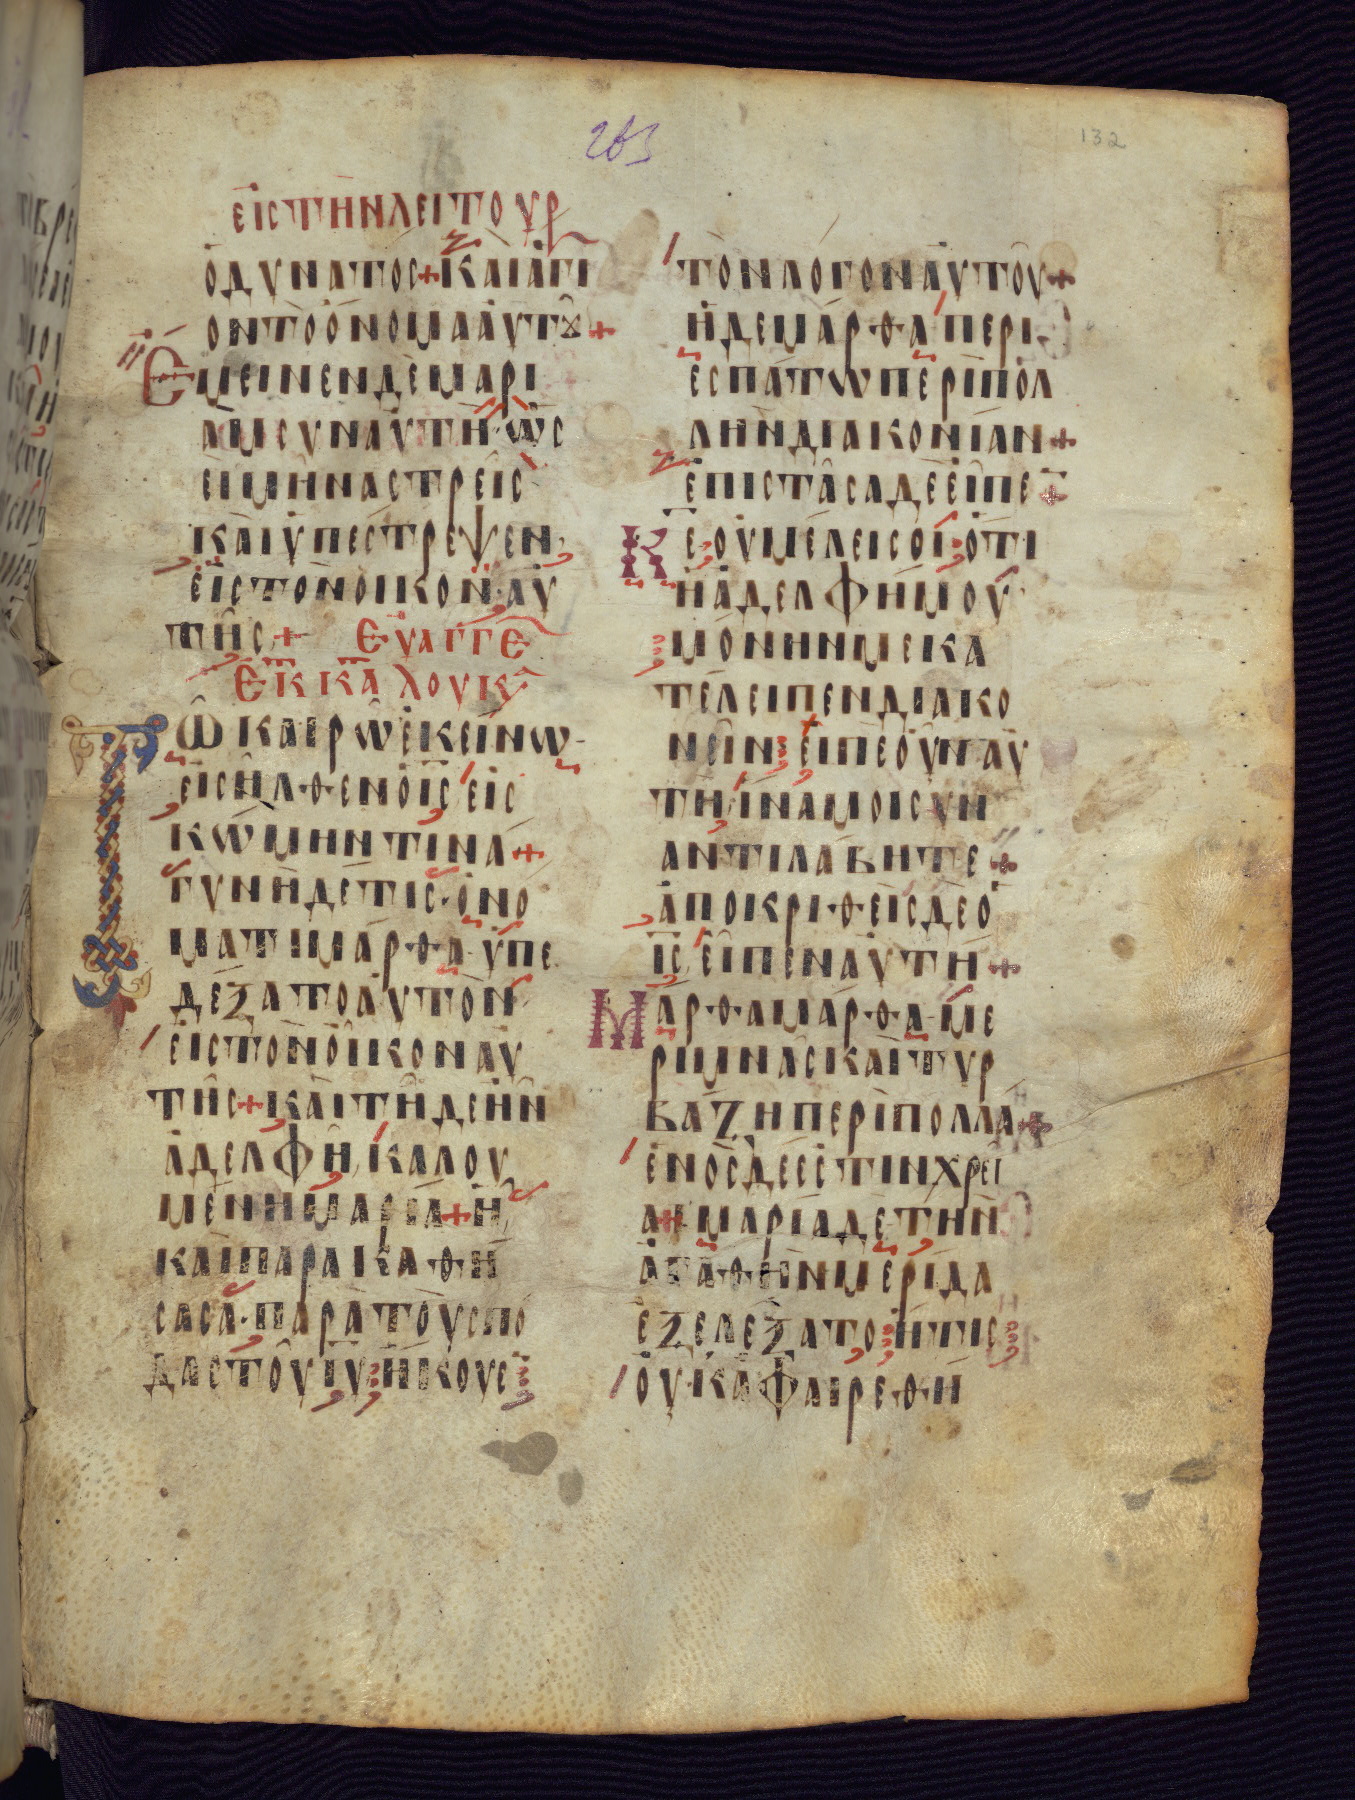 263
132
εἰς τὴν λειτουρ
ὁ δυνατος + Καὶ ἅγι
ον τὸ ὄνομα αὐτȣ͂ +
Ἔμεινεν δὲ μαρι
ὰμ σὺν αὐτῆ· ὡς
εἰ μῆνας τρεῖς
Καὶ ὑπέστρεψεν
εἰς τὸν οἶκον αὐ
τῆς + Εὐαγγε
Ἐκ κ̅τ̅ Λουκ
Τῶ καιρῶ ἐκείνω·
εἰσῆλθεν ὁ ι̅ς̅ εἰς
κώμην τινά +
γυνὴ δέ τις· ὀνό
ματι μάρθα· ὑπε
δέξατο αὐτὸν
εἰς τὸν οἶκον αὐ
τῆς + καὶ τῆδε ἦν
ἀδελφὴ, καλου
μένη μαρία + ἣ,
καὶ παρακαθή
σασα· παρὰ τοὺς πό
δας τοῦ ι̅υ̅ ἤκουε
τὸν λόγον αὐτοῦ +
ἡ δὲ μάρθα περι
εσπάτω περὶ πολ
λὴν διακονίαν +
ἐπιστᾶσα δὲ εἶπε +
Κ̅ε̅ οὐ μέλει σοι ὅτι
ἡ ἀδελφή μου
μόνην με κα
τέλειπεν διακο
νεῖν εἰπὲ οὖν αὐ
τῆ ἵνα μοι συν
αντιλάβητε +
ἀποκριθεὶς δὲ ὁ
ι̅ς̅ εἶπεν αὐτῆ +
Μάρθα μάρθα· με
ριμνᾶς καὶ τυρ
βάζη περὶ πολλὰ +
ἑνὸς δέ ἐστιν χρεί
α + μαρία δὲ τὴν
ἀγαθὴν μερίδα
ἐξελέξατο ἥτις
οὐκ ἀφαιρεθή